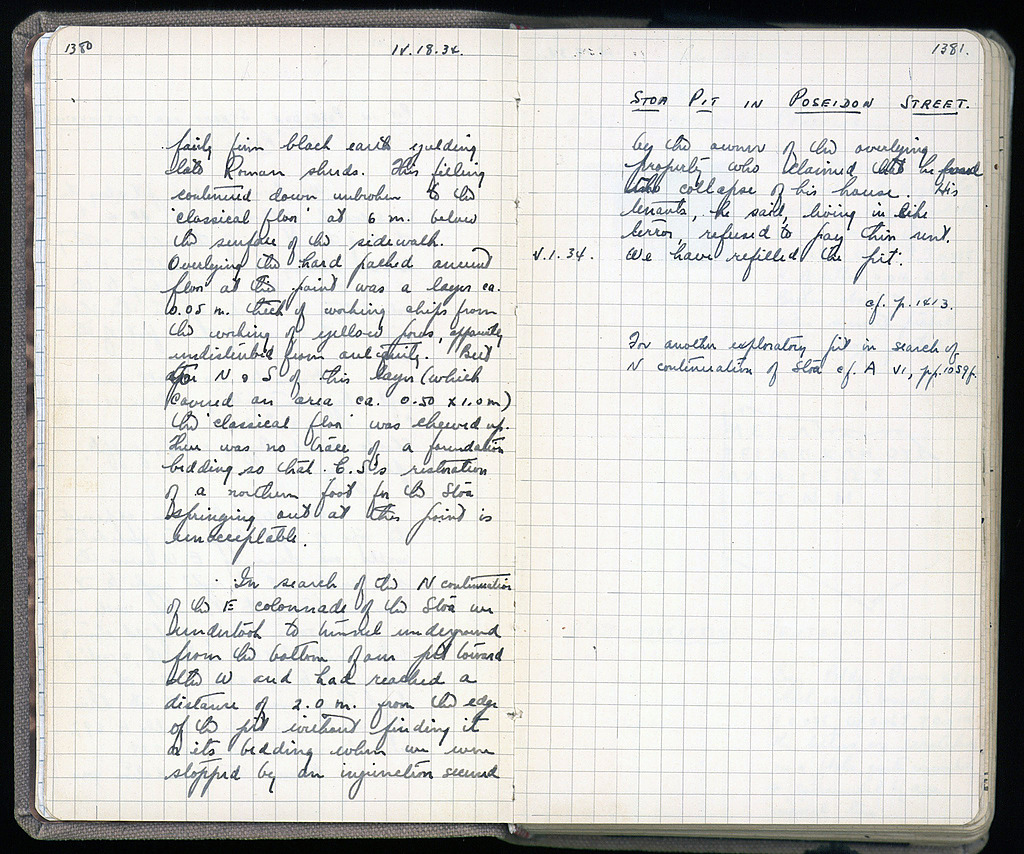 1380
IV.18.34.
fairly firm black earth yielding
late Roman sherds. This filling
continued down unbroken to the
'classical floor' at 6 m. below
the surface of the sidewalk.
Overlying the hard packed ancient
floor at this point was a layer ca.
0.05 m. thick of working chips from
the working of yellow poros, apparently
undisturbed from antiquity. But
N & S of this layer (which
covered an area ca. 0.50 x 1.0 m)
the 'classical floor' was chewed up.
There was no trace of a foundation
bedding so that G.S's restoration
of a northern foot for the Stoa
springing out at this point is
unacceptable.
In search of the N continuation
of the E colonnade of the Stoa we
undertook to tunnel underground
from the bottom of our pit toward
the W and had reached a
distance of 2.0 m. from the edge
of the pit without finding it
or its bedding when we were
stopped by an injunction secured
1381.
STOA PIT IN POSEIDON STREET.
by the owner of the overlying
property who claimed that he feared
the collapse of his house. His
tenants, he said, living in like
terror, refused to pay their rent.
V.1.34. We have refilled the pit.
cf. p. 1413.
For another exploratory pit in search of
N continuation of Stoa cf. A VI, pp. 1059f.